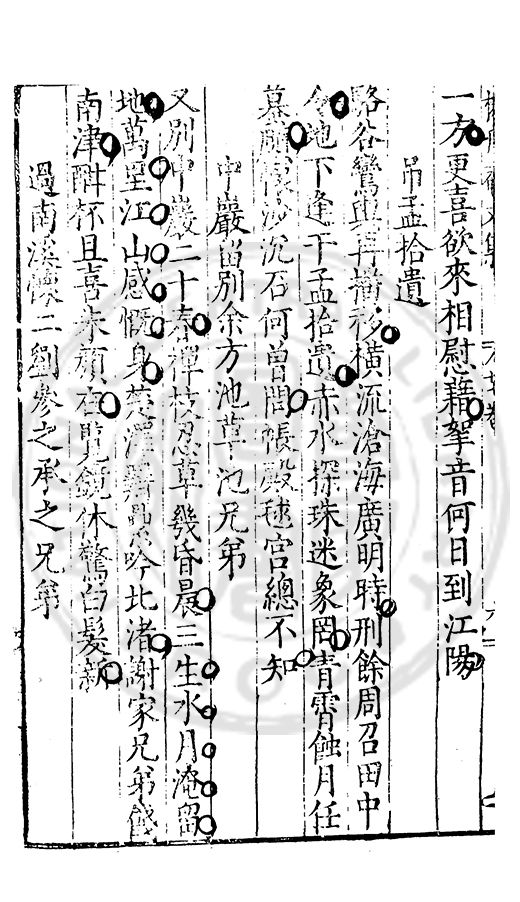 一方更喜欲來相慰藉拏音何日到江陽
弔孟拾遺
駱谷鸞輿再橫移橫流滄海廣明時刑餘周召田中
令地下逢干孟拾遺赤水探珠迷象罔青霄蝕月任
蟇 懷沙沉石何曾問帳殿毬宮總不知
中巖留別余方池草池兄弟
又別中巖二十春禪枝忍草幾昏晨三生水月淹留
地萬里江山感慨身楚澤 吟比渚謝家兄弟餞
南津酣杯且喜朱顏在覽鏡休驚白髮新
過南溪懷二劉參之承之兄弟